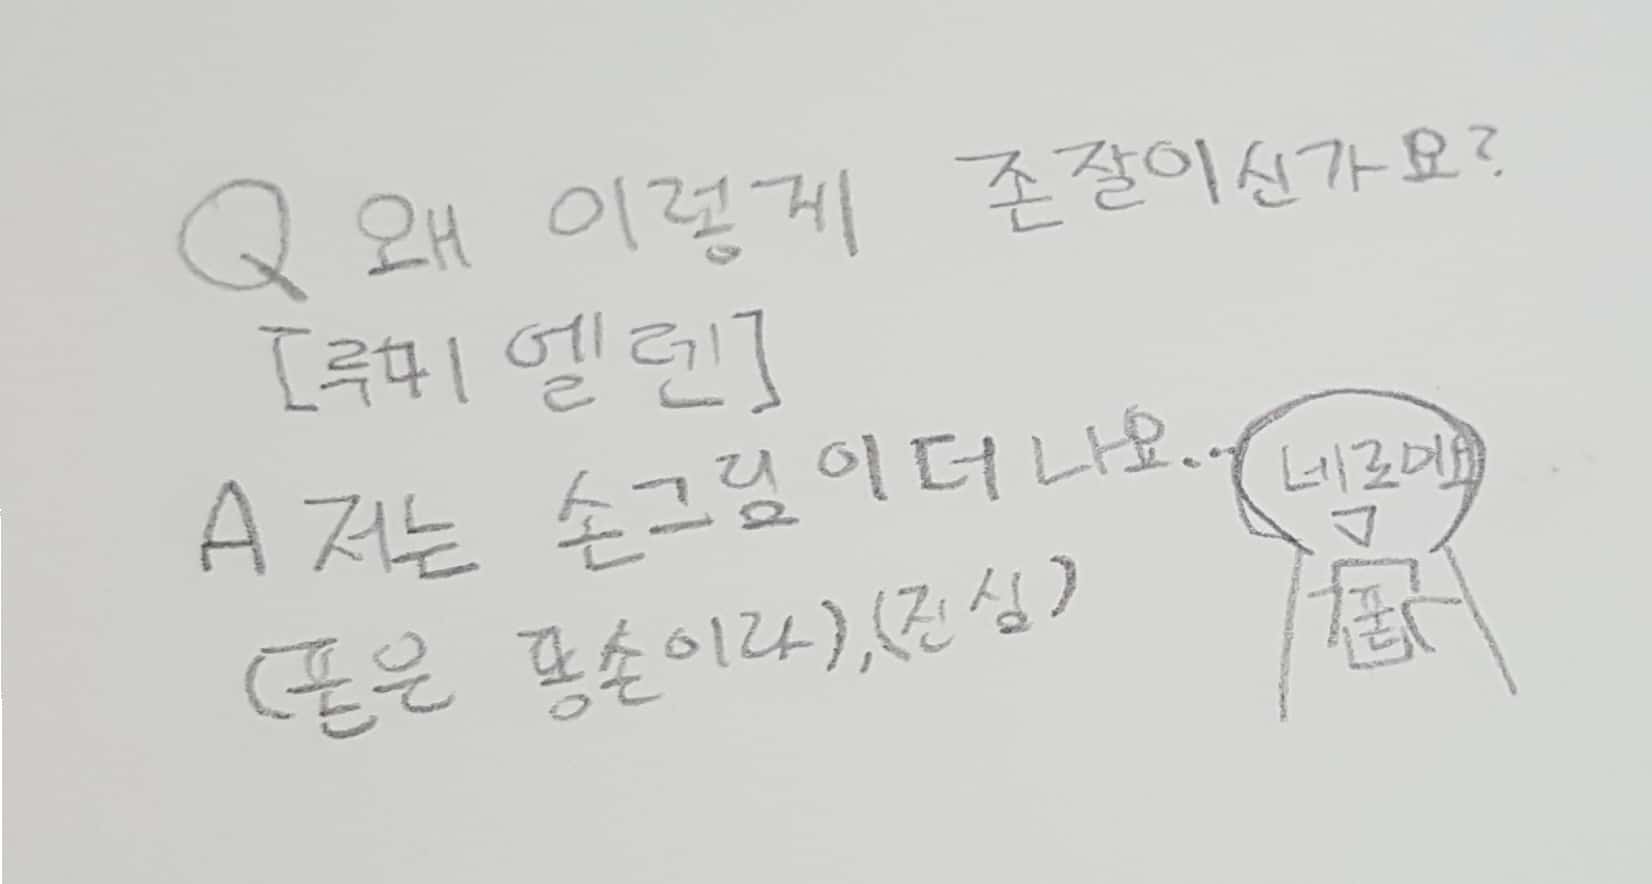 Q 왜 이렇게 존잘이신가요?
[루피 엘렌]
A 저는 손그림이 더 나요...
(폰은 똥손이라),(진심)
네로에요
폰